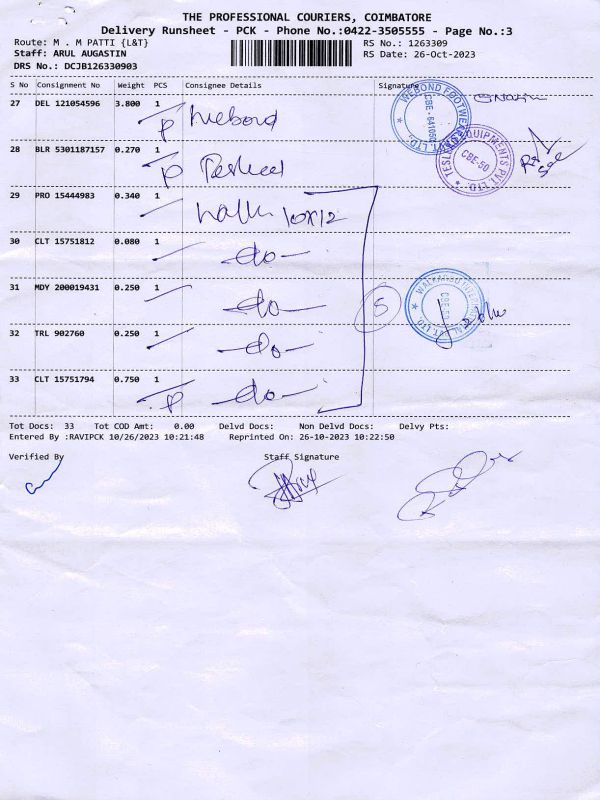 THE PROFESSIONAL COURIERS, COIMBATORE
Delivery Runsheet - PCK - Phone No.:0422-3505555 - Page No.:3
Route: M . M PATTI {L&T} RS No.: 1263309
Staff: ARUL AUGASTIN RS Date: 26-Oct-2023
DRS No.: DCJB126330903
S No Consignment No Weight PCS Consignee Details Signature
27 DEL 121054596 3.800 1
P Webond
WEBOND FOOTWEAR PVT. LTD. CBE-641050
28 BLR 5301187157 0.270 1
P
EQUIPMENTS PVT.LTD. CBE-50
29 PRO 15444983 0.340 1
30 CLT 15751812 0.080 1
-do-
31 MDY 200019431 0.250 1
-do-
5
32 TRL 902760 0.250 1
-do-
33 CLT 15751794 0.750 1
P -do-
Tot Docs: 33 Tot COD Amt: 0.00 Delvd Docs: Non Delvd Docs: Delvy Pts:
Entered By :RAVIPCK 10/26/2023 10:21:48 Reprinted On: 26-10-2023 10:22:50
Verified By Staff Signature